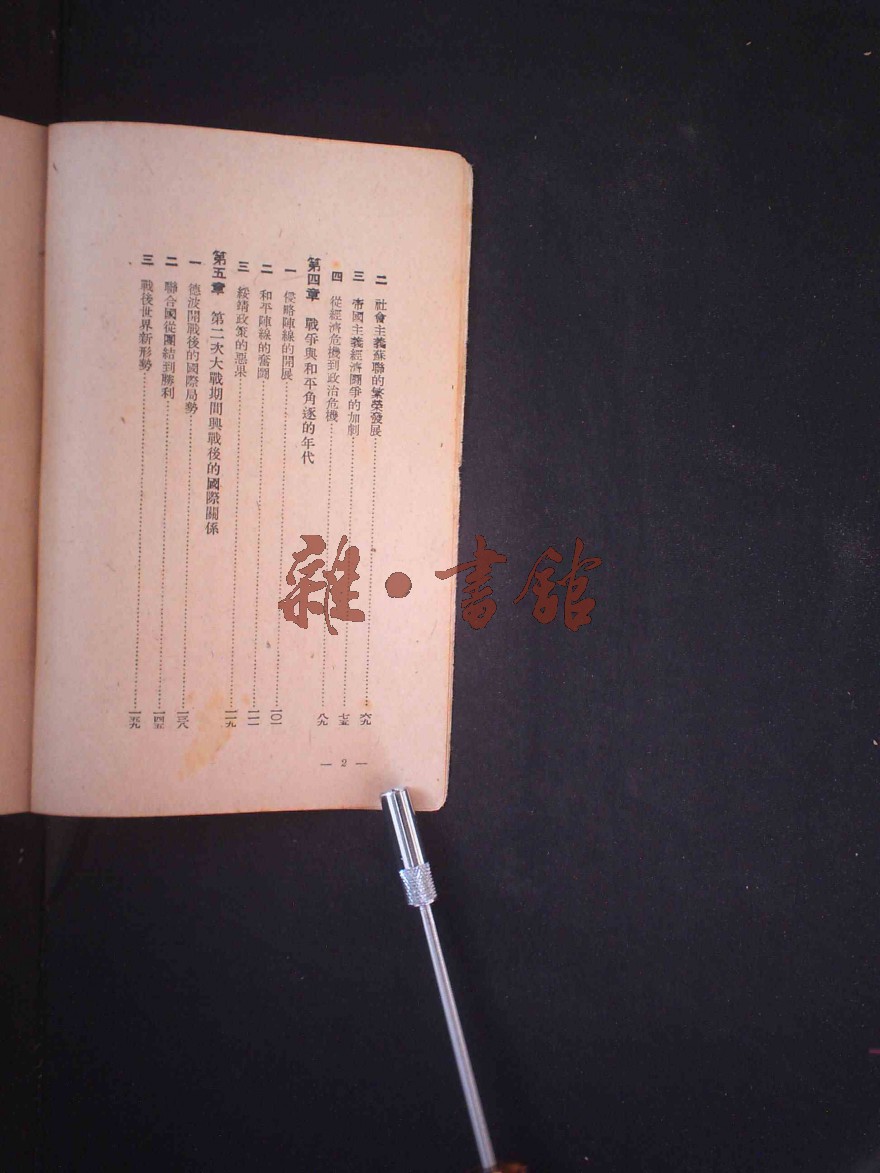 二 社會主義蘇聯的繁榮發展……六九
三 帝國主義經濟鬪爭的加劇……七五
四 從經濟危機到政治危機……八九
第四章 戰爭與和平角逐的年代
一 侵略陣線的開展……一〇一
二 和平陣線的奮鬪……一一一
三 綏靖政策的惡果……一一九
第五章 第二次大戰期間與戰後的國際關係
一 德波開戰後的國際局勢……一三八
二 聯合國從團結到勝利……一四五
三 戰後世界新形勢……一五九
— 2 —
雜·書館